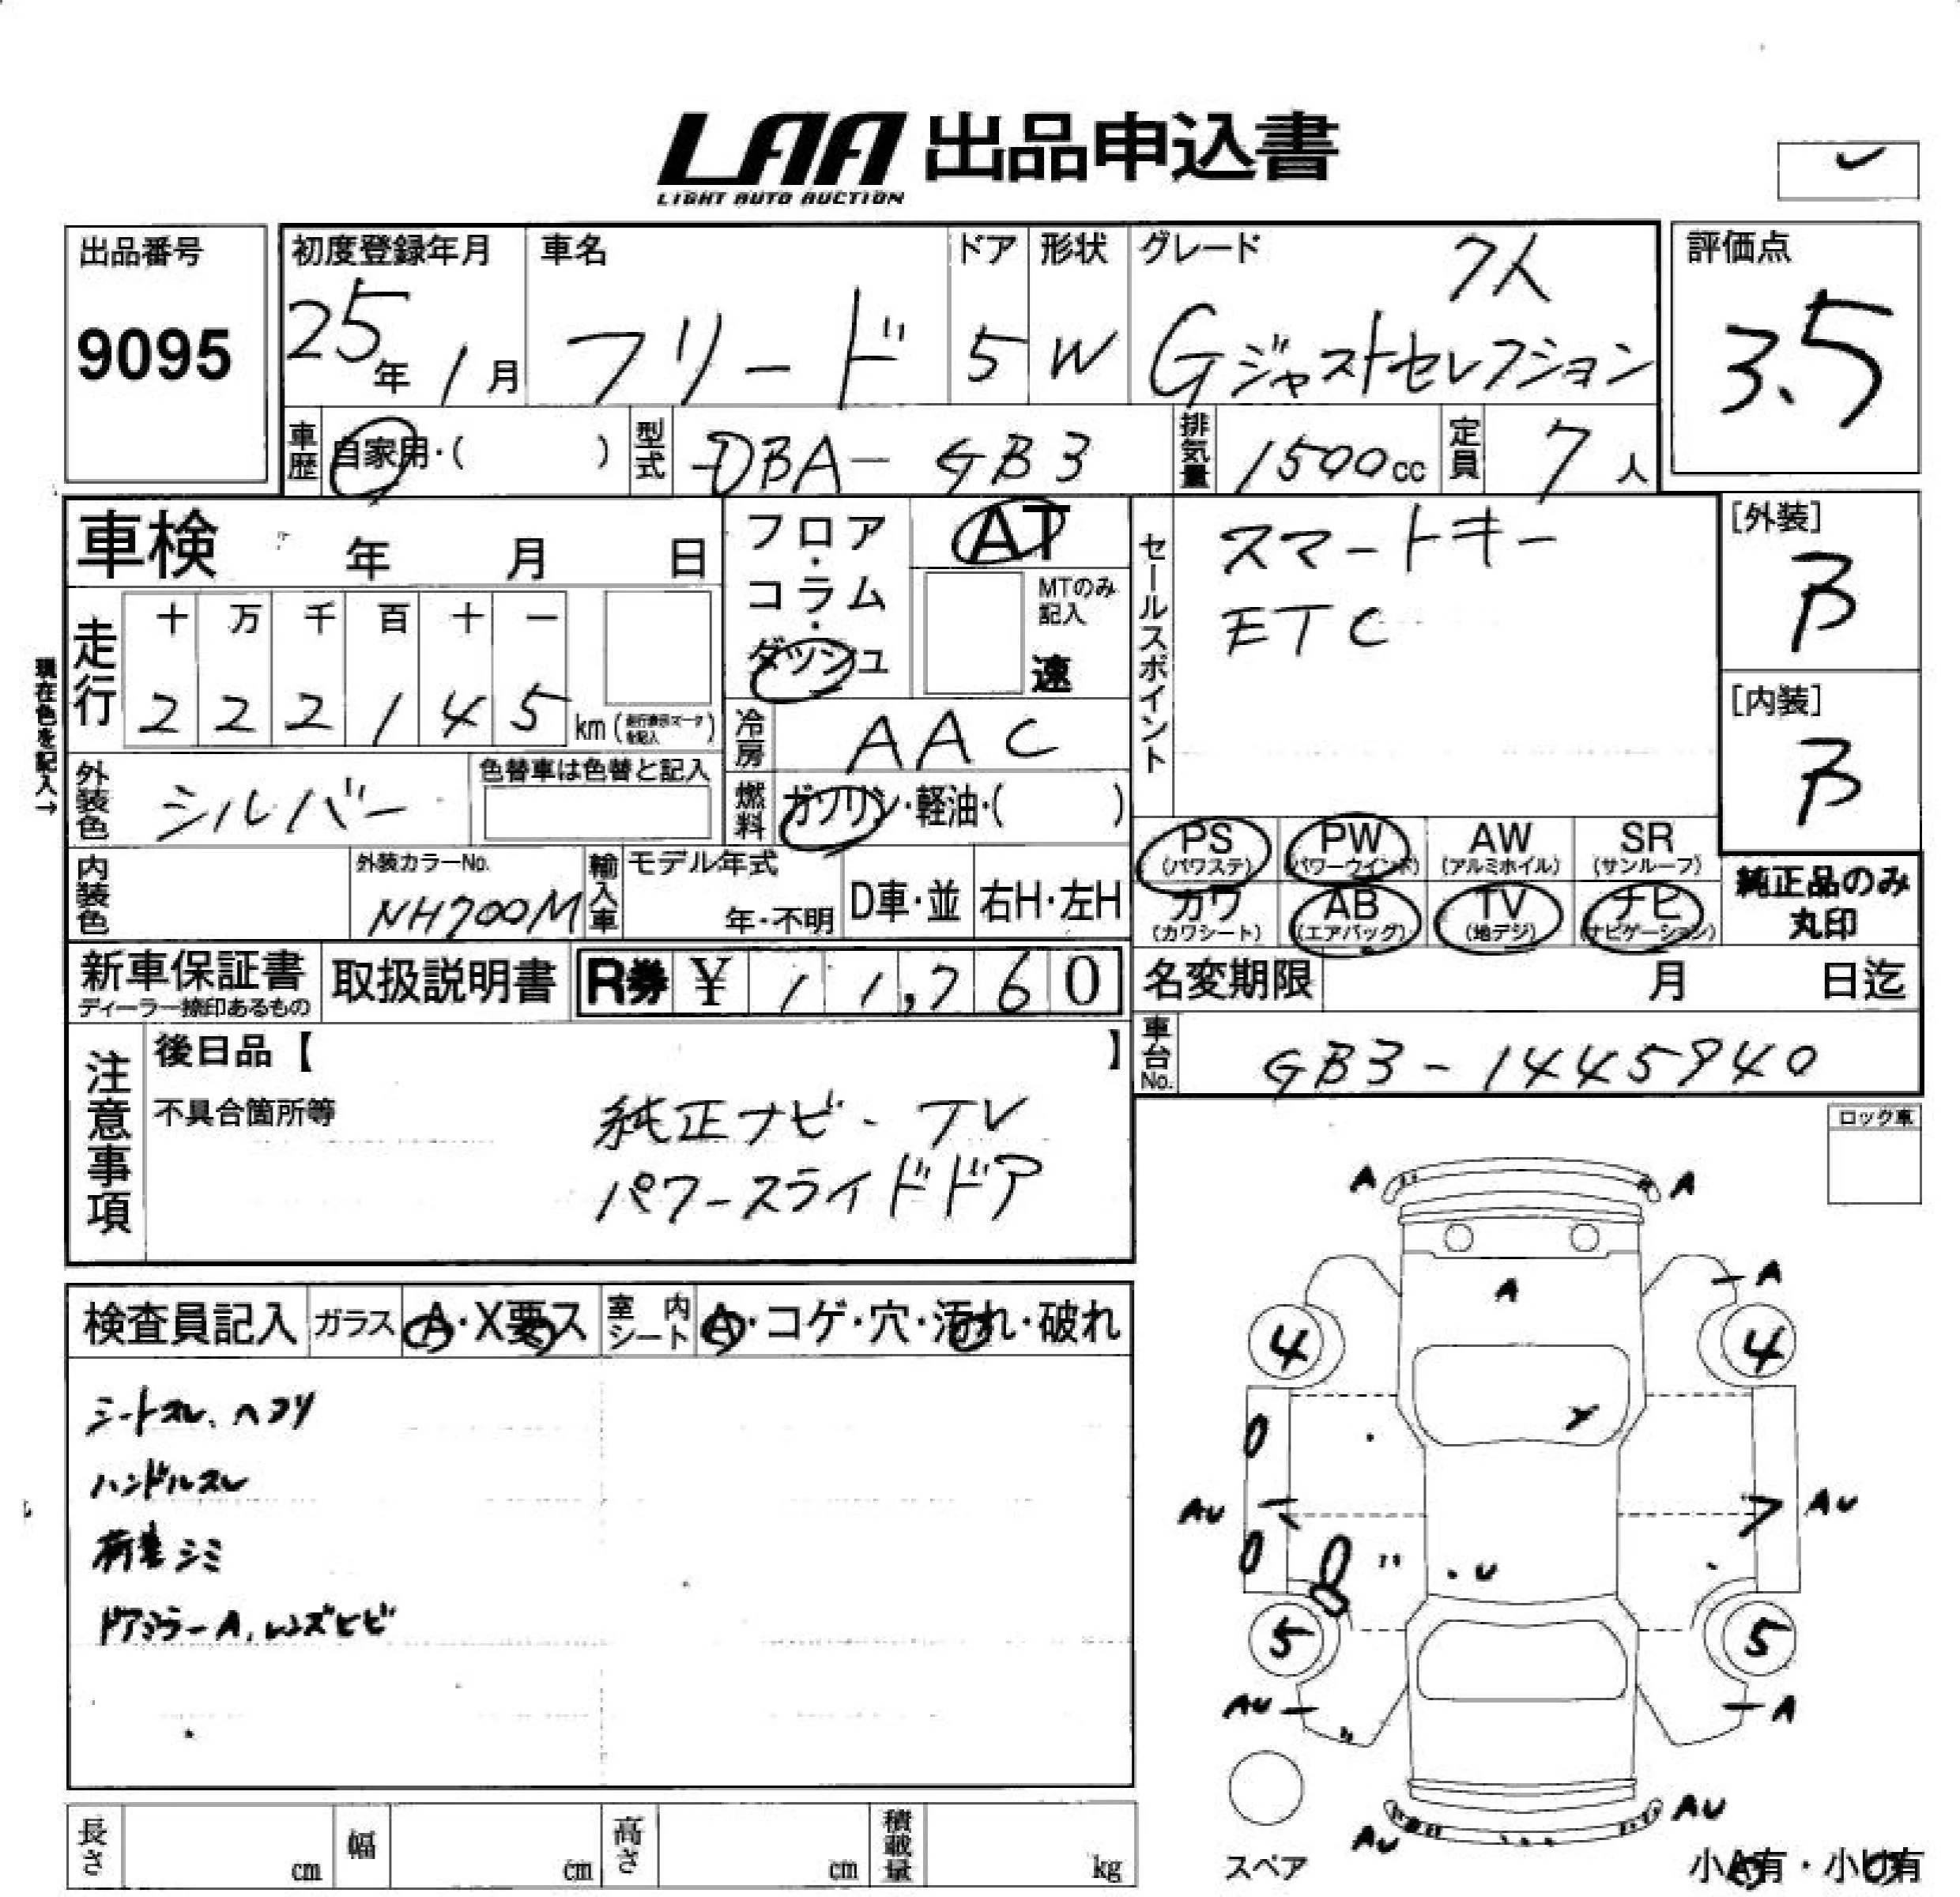 LAA 出品申込書
LIGHT AUTO AUCTION
出品番号
9095
初度登録年月
25年1月
車名
フリード
ドア
5
形状
W
グレード
7人
Gジャストセレクション
評価点
3.5
車歴
自家用・( )
型式
DBA-GB3
排気量
1500cc
定員
7人
車検 年 月 日
フロア・コラム・ダッシュ
AT
MTのみ記入
速
セールスポイント
スマートキー
ETC
[外装]
B
[内装]
B
現在色を記入→
走行
十 万 千 百 十 一
2 2 2 1 4 5 km(走行表示マークを記入)
冷房
AAC
外装色
シルバー
色替車は色替と記入
燃料
ガソリン・軽油・( )
PS (パワステ)
PW (パワーウインド)
AW (アルミホイル)
SR (サンルーフ)
カワ (カワシート)
AB (エアバッグ)
TV (地デジ)
ナビ (ナビゲーション)
純正品のみ丸印
内装色
外装カラーNo.
NH700M
輸入車
モデル年式
年・不明
D車・並
右H・左H
新車保証書
ディーラー捺印あるもの
取扱説明書
R券 ¥ 11,760
名変期限 月 日迄
車台No.
GB3-1445940
注意事項
後日品【 】
不具合箇所等
純正ナビ-TV
パワースライドドア
ロック車
検査員記入
ガラス
A・X要ス
室内シート
A・コゲ・穴・汚れ・破れ
シートスレ、ヘコリ
ハンドルスレ
荷室シミ
ドアミラーA、レンズヒビ
A A
A
A
4 4
Y
AU AU
U
5 5
AU A
AU
AU
スペア
小A有・小U有
長さ cm
幅 cm
高さ cm
積載量 kg